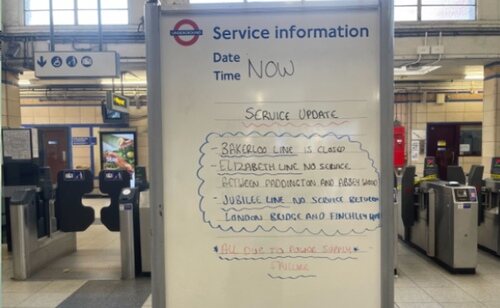 UNDERGROUND
Service information
Date
Time NOW
SERVICE UPDATE
- BAKERLOO LINE IS CLOSED
- ELIZABETH LINE NO SERVICE
BETWEEN PADDINGTON AND ABBEY WOOD
- JUBILEE LINE NO SERVICE BETWEEN
LONDON BRIDGE AND FINCHLEY
*ALL DUE TO POWER SUPPLY*
FAILURE